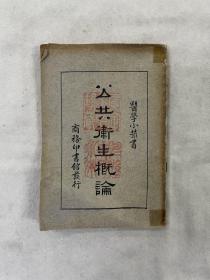 醫學小叢書
公共衞生概論
商務印書館發行